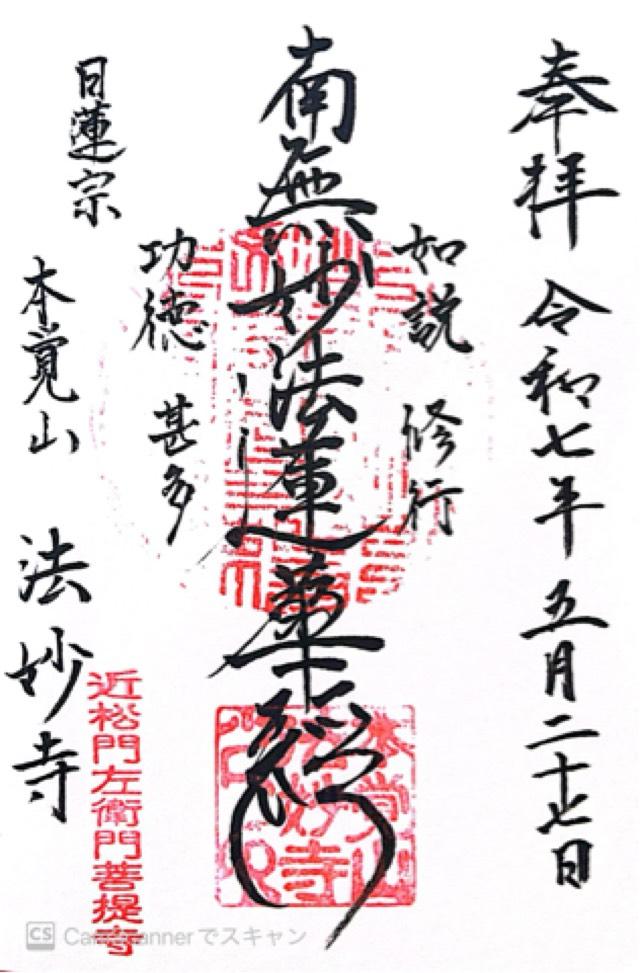 奉拝 令和七年 五月二十七日
如説修行
南無妙法蓮華経
功徳甚多
日蓮宗
本覚山
法妙寺
近松門左衛門菩提寺
CS CamScannerでスキャン